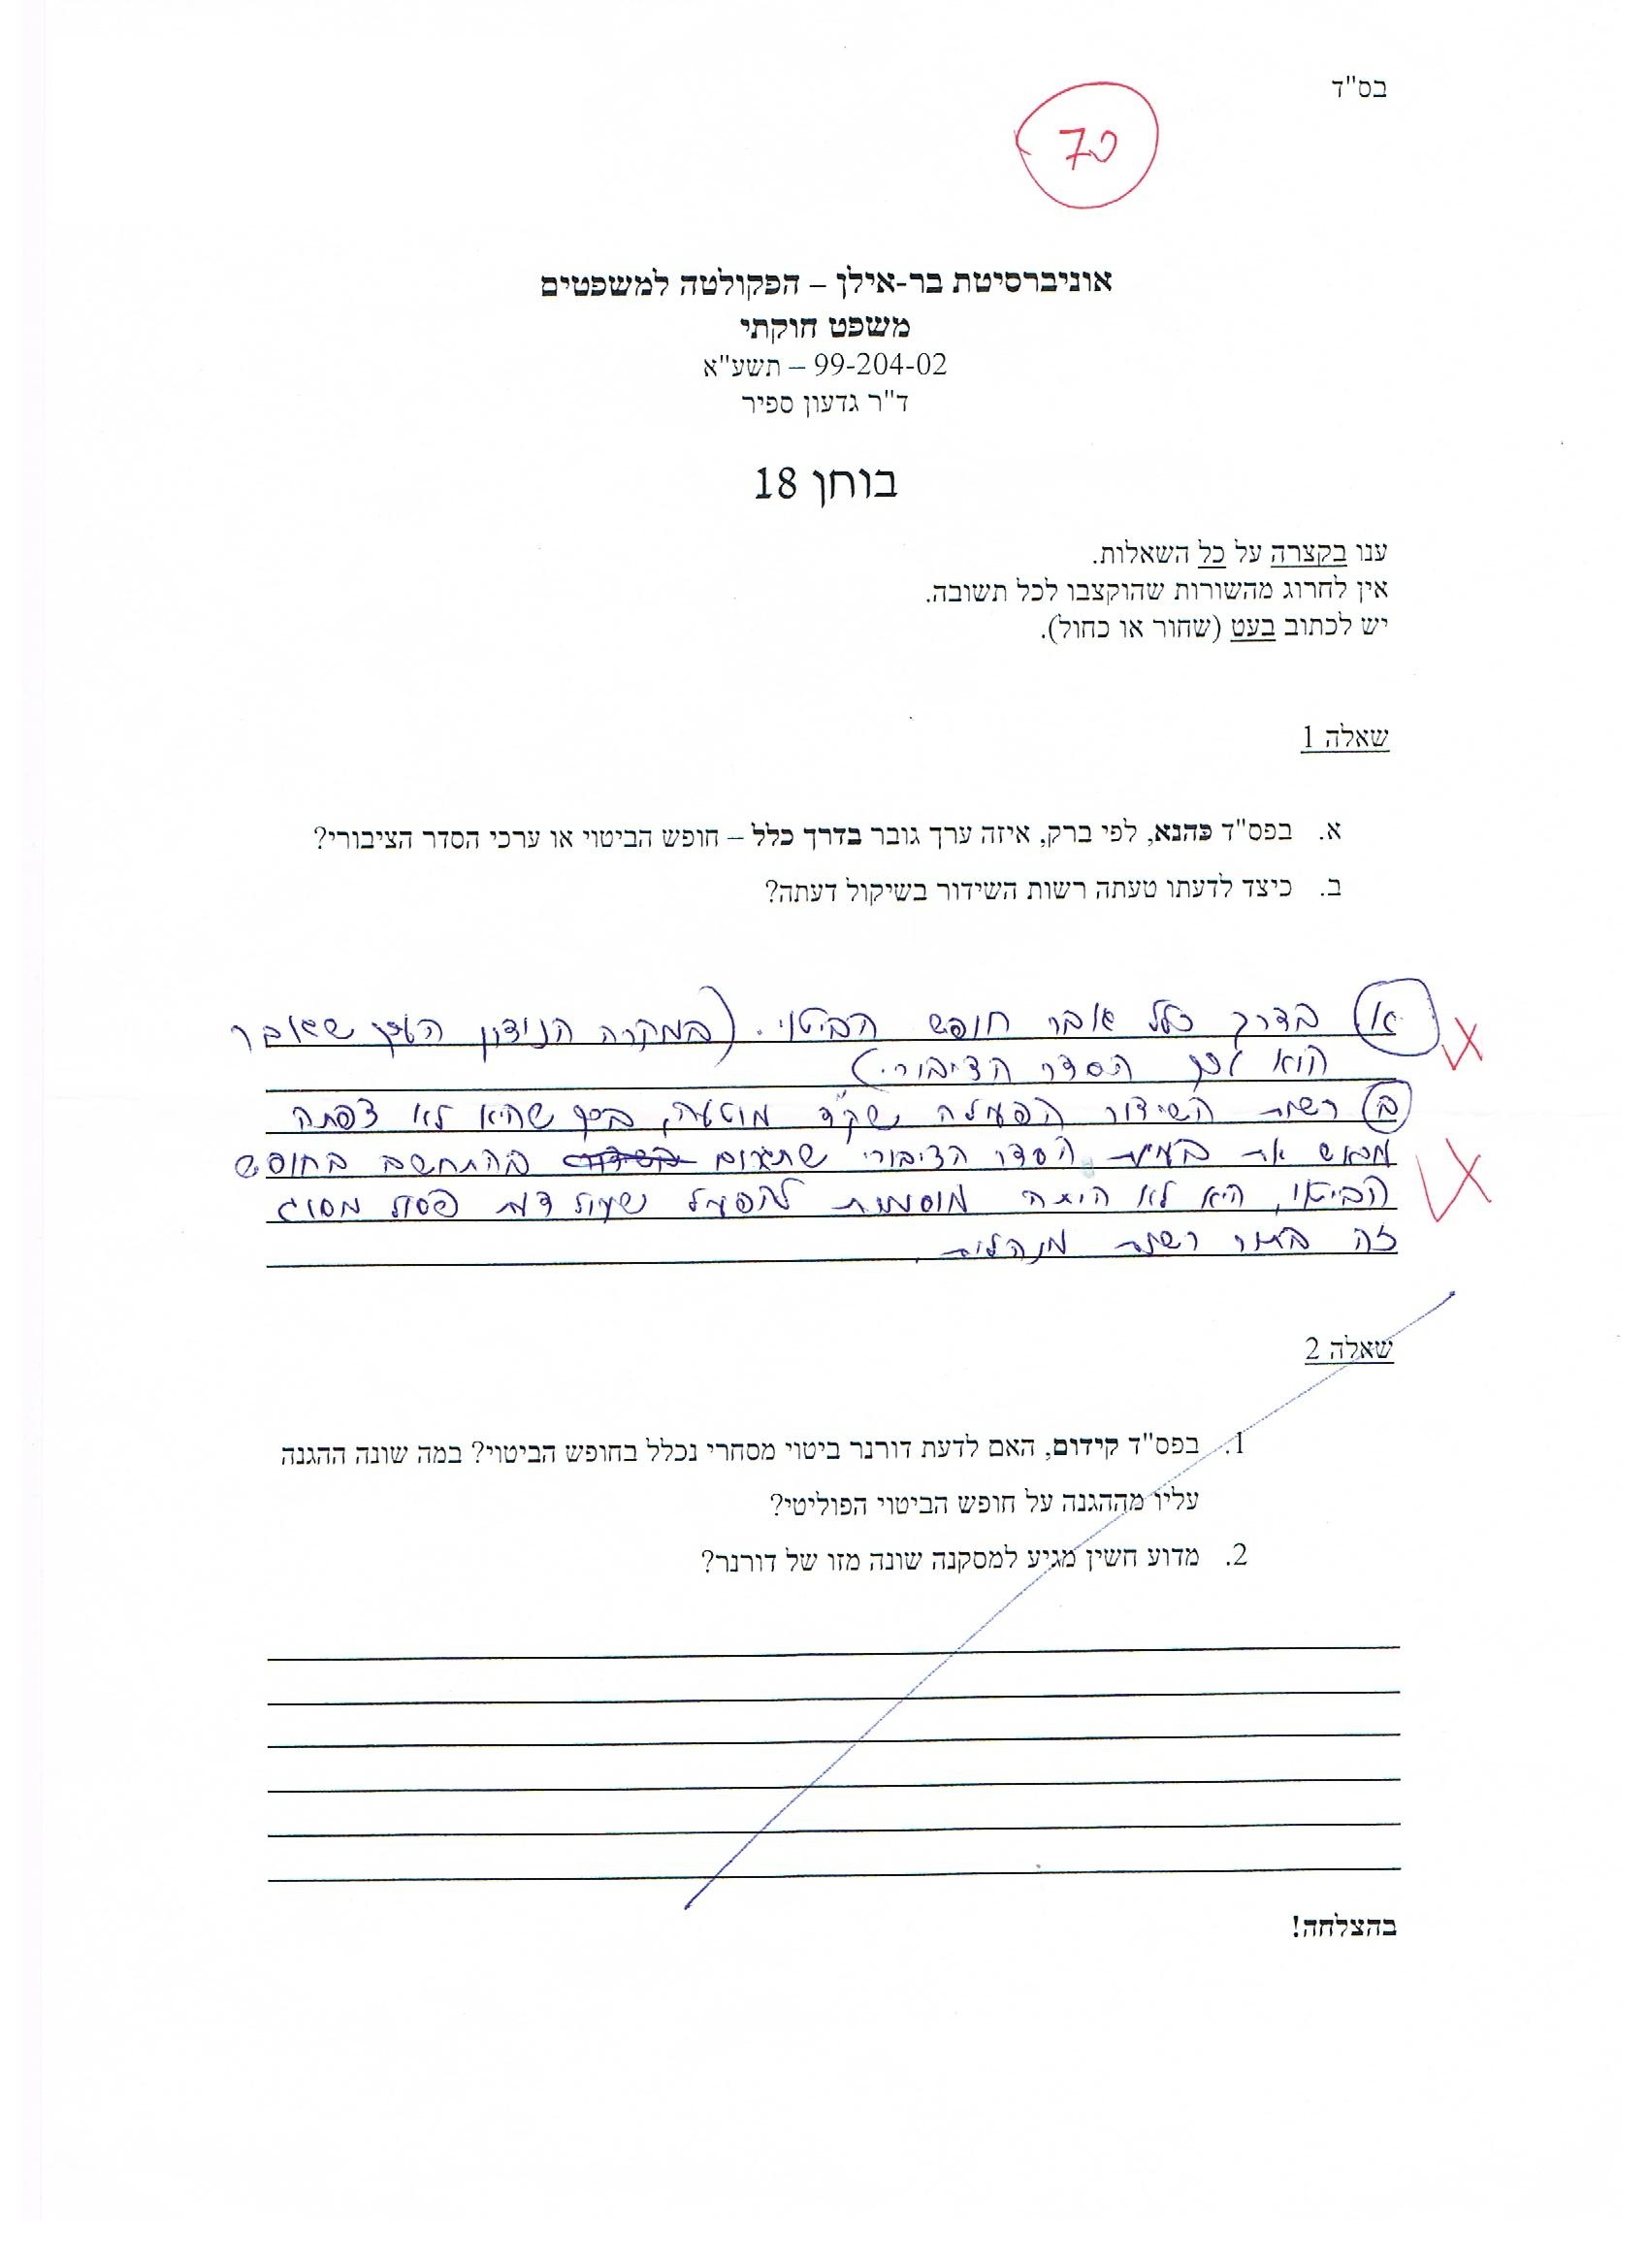 בס"ד
70
אוניברסיטת בר-אילן – הפקולטה למשפטים
משפט חוקתי
99-204-02 – תשע"א
ד"ר גדעון ספיר
בוחן 18
ענו בקצרה על כל השאלות.
אין לחרוג מהשורות שהוקצבו לכל תשובה.
יש לכתוב בעט (שחור או כחול).
שאלה 1
א. בפס"ד כהנא, לפי ברק, איזה ערך גובר בדרך כלל – חופש הביטוי או ערכי הסדר הציבורי?
ב. כיצד לדעתו טעתה רשות השידור בשיקול דעתה?
א) בדרך כלל גובר חופש הביטוי. (במקרה הנידון הערך שגובר
הוא ערך הסדר הציבורי)
ב) רשות השידור הפעילה שק"ד מוטעה, בכך שהיא לא צפתה
מראש את בעיית הסדר הציבורי שתגרום בהתחשב בחופש
הביטוי, היא לא הייתה מוסמכת להפעיל שיקול דעת פסול מסוג
זה בתור רשות מנהלית.
שאלה 2
1. בפס"ד קידום, האם לדעת דורנר ביטוי מסחרי נכלל בחופש הביטוי? במה שונה ההגנה
עליו מההגנה על חופש הביטוי הפוליטי?
2. מדוע חשין מגיע למסקנה שונה מזו של דורנר?
בהצלחה!